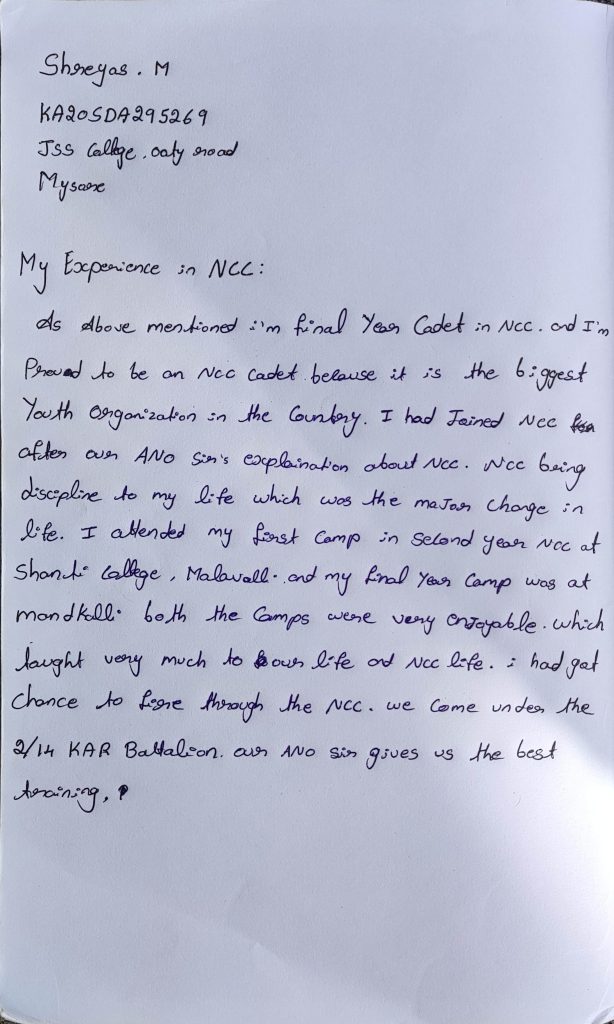 Shreyas. M
KA20SDA295269
JSS College, ooty road
Mysore
My Experience in NCC:
As Above mentioned i'm final Year Cadet in NCC. and I'm
Proud to be an NCC cadet because it is the biggest
Youth Organization in the Country. I had Joined NCC
after our ANO sir's explaination about NCC. NCC being
discipline to my life which was the major change in
life. I attended my first Camp in Second year NCC at
Shanti College, Malavalli. and my final Year Camp was at
mandkalli both the Camps were very enjoyable. which
taught very much to our life and NCC life. i had got
Chance to fire through the NCC. we Come under the
2/14 KAR Battalion. our ANO sir gives us the best
training,